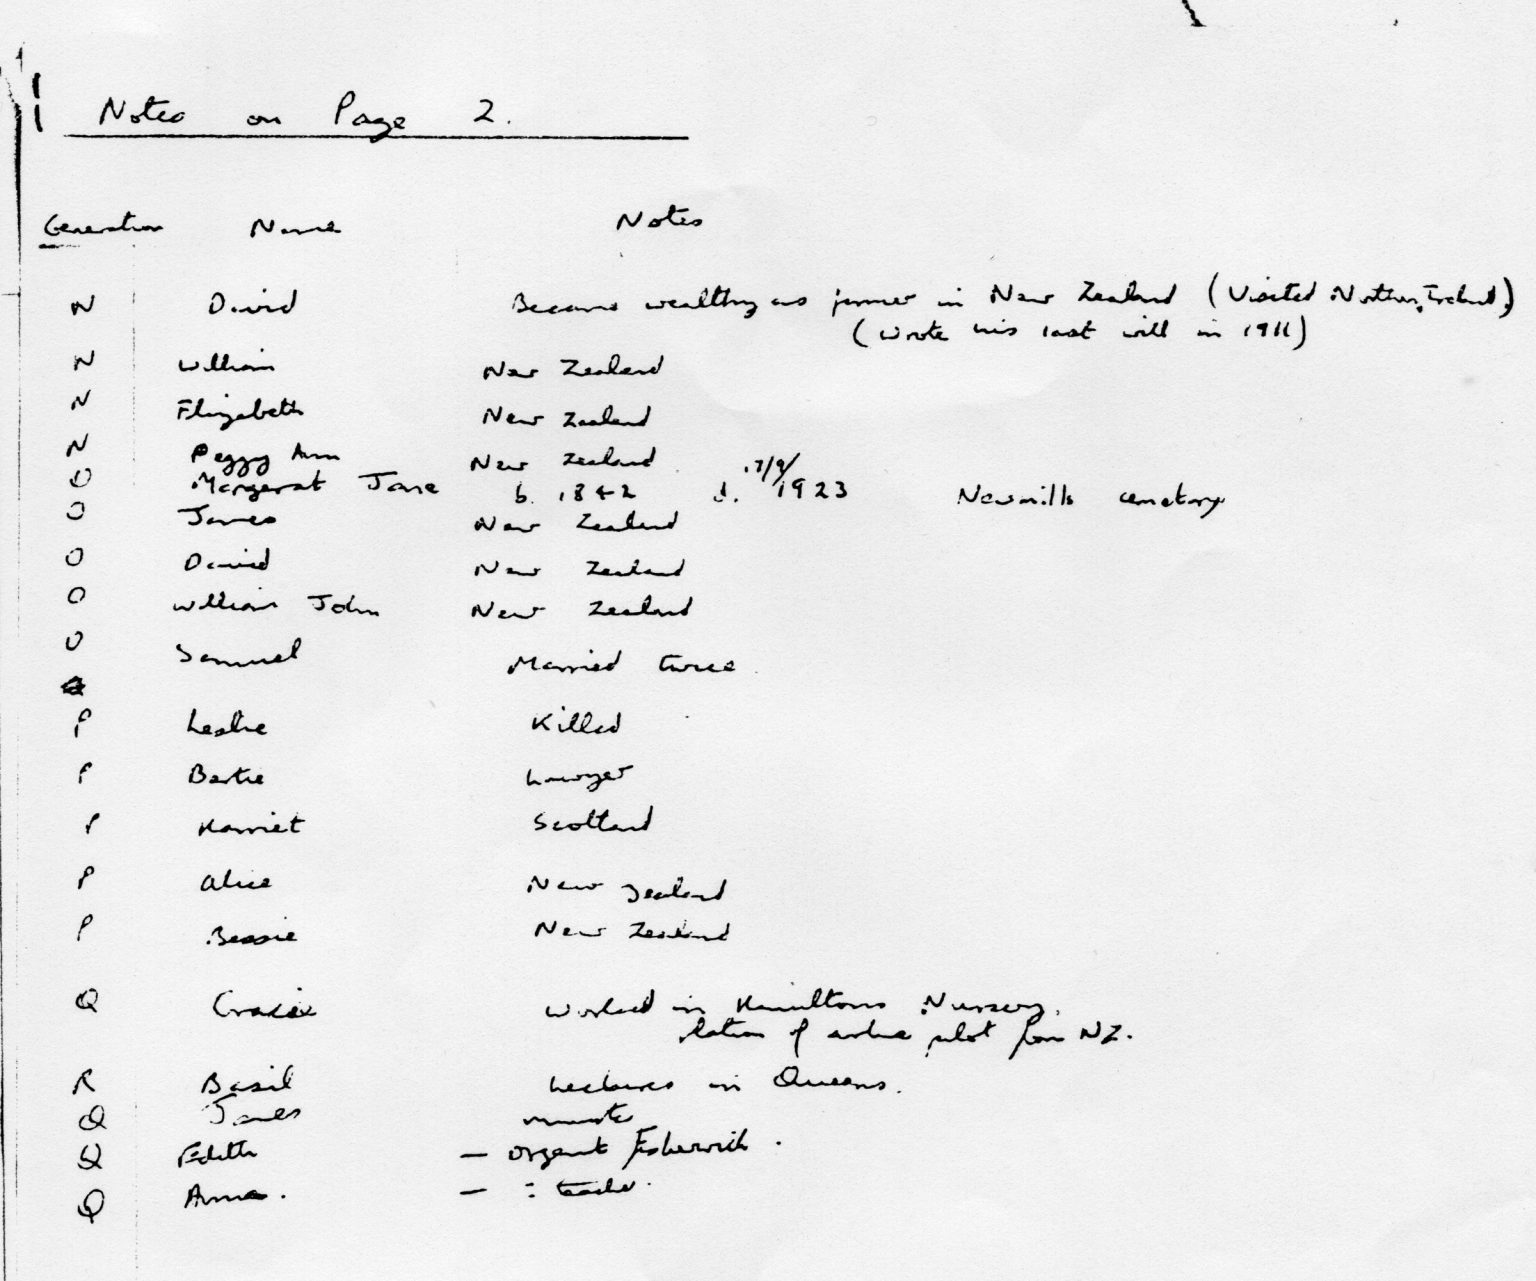 Notes on Page 2.
Generation Name Notes
N David Became wealthy as farmer in New Zealand (Visited Northern Ireland)
(Wrote his last will in 1911)
N William New Zealand
N Elizabeth New Zealand
N Peggy Ann New Zealand
O Margaret Jane b. 1842 d. 17/9/1923 Newmills cemetary
O James New Zealand
O David New Zealand
O William John New Zealand
O Samuel Married twice
P Leslie Killed
P Bertie Lawyer
P Harriet Scotland
P Alice New Zealand
P Bessie New Zealand
Q Worked in Hamiltons Nursery.
of airline pilot from NZ.
R Basil Lectures in Queens.
Q James minister
Q Edith – organist Fisherwick.
Q Anna. – : teacher.